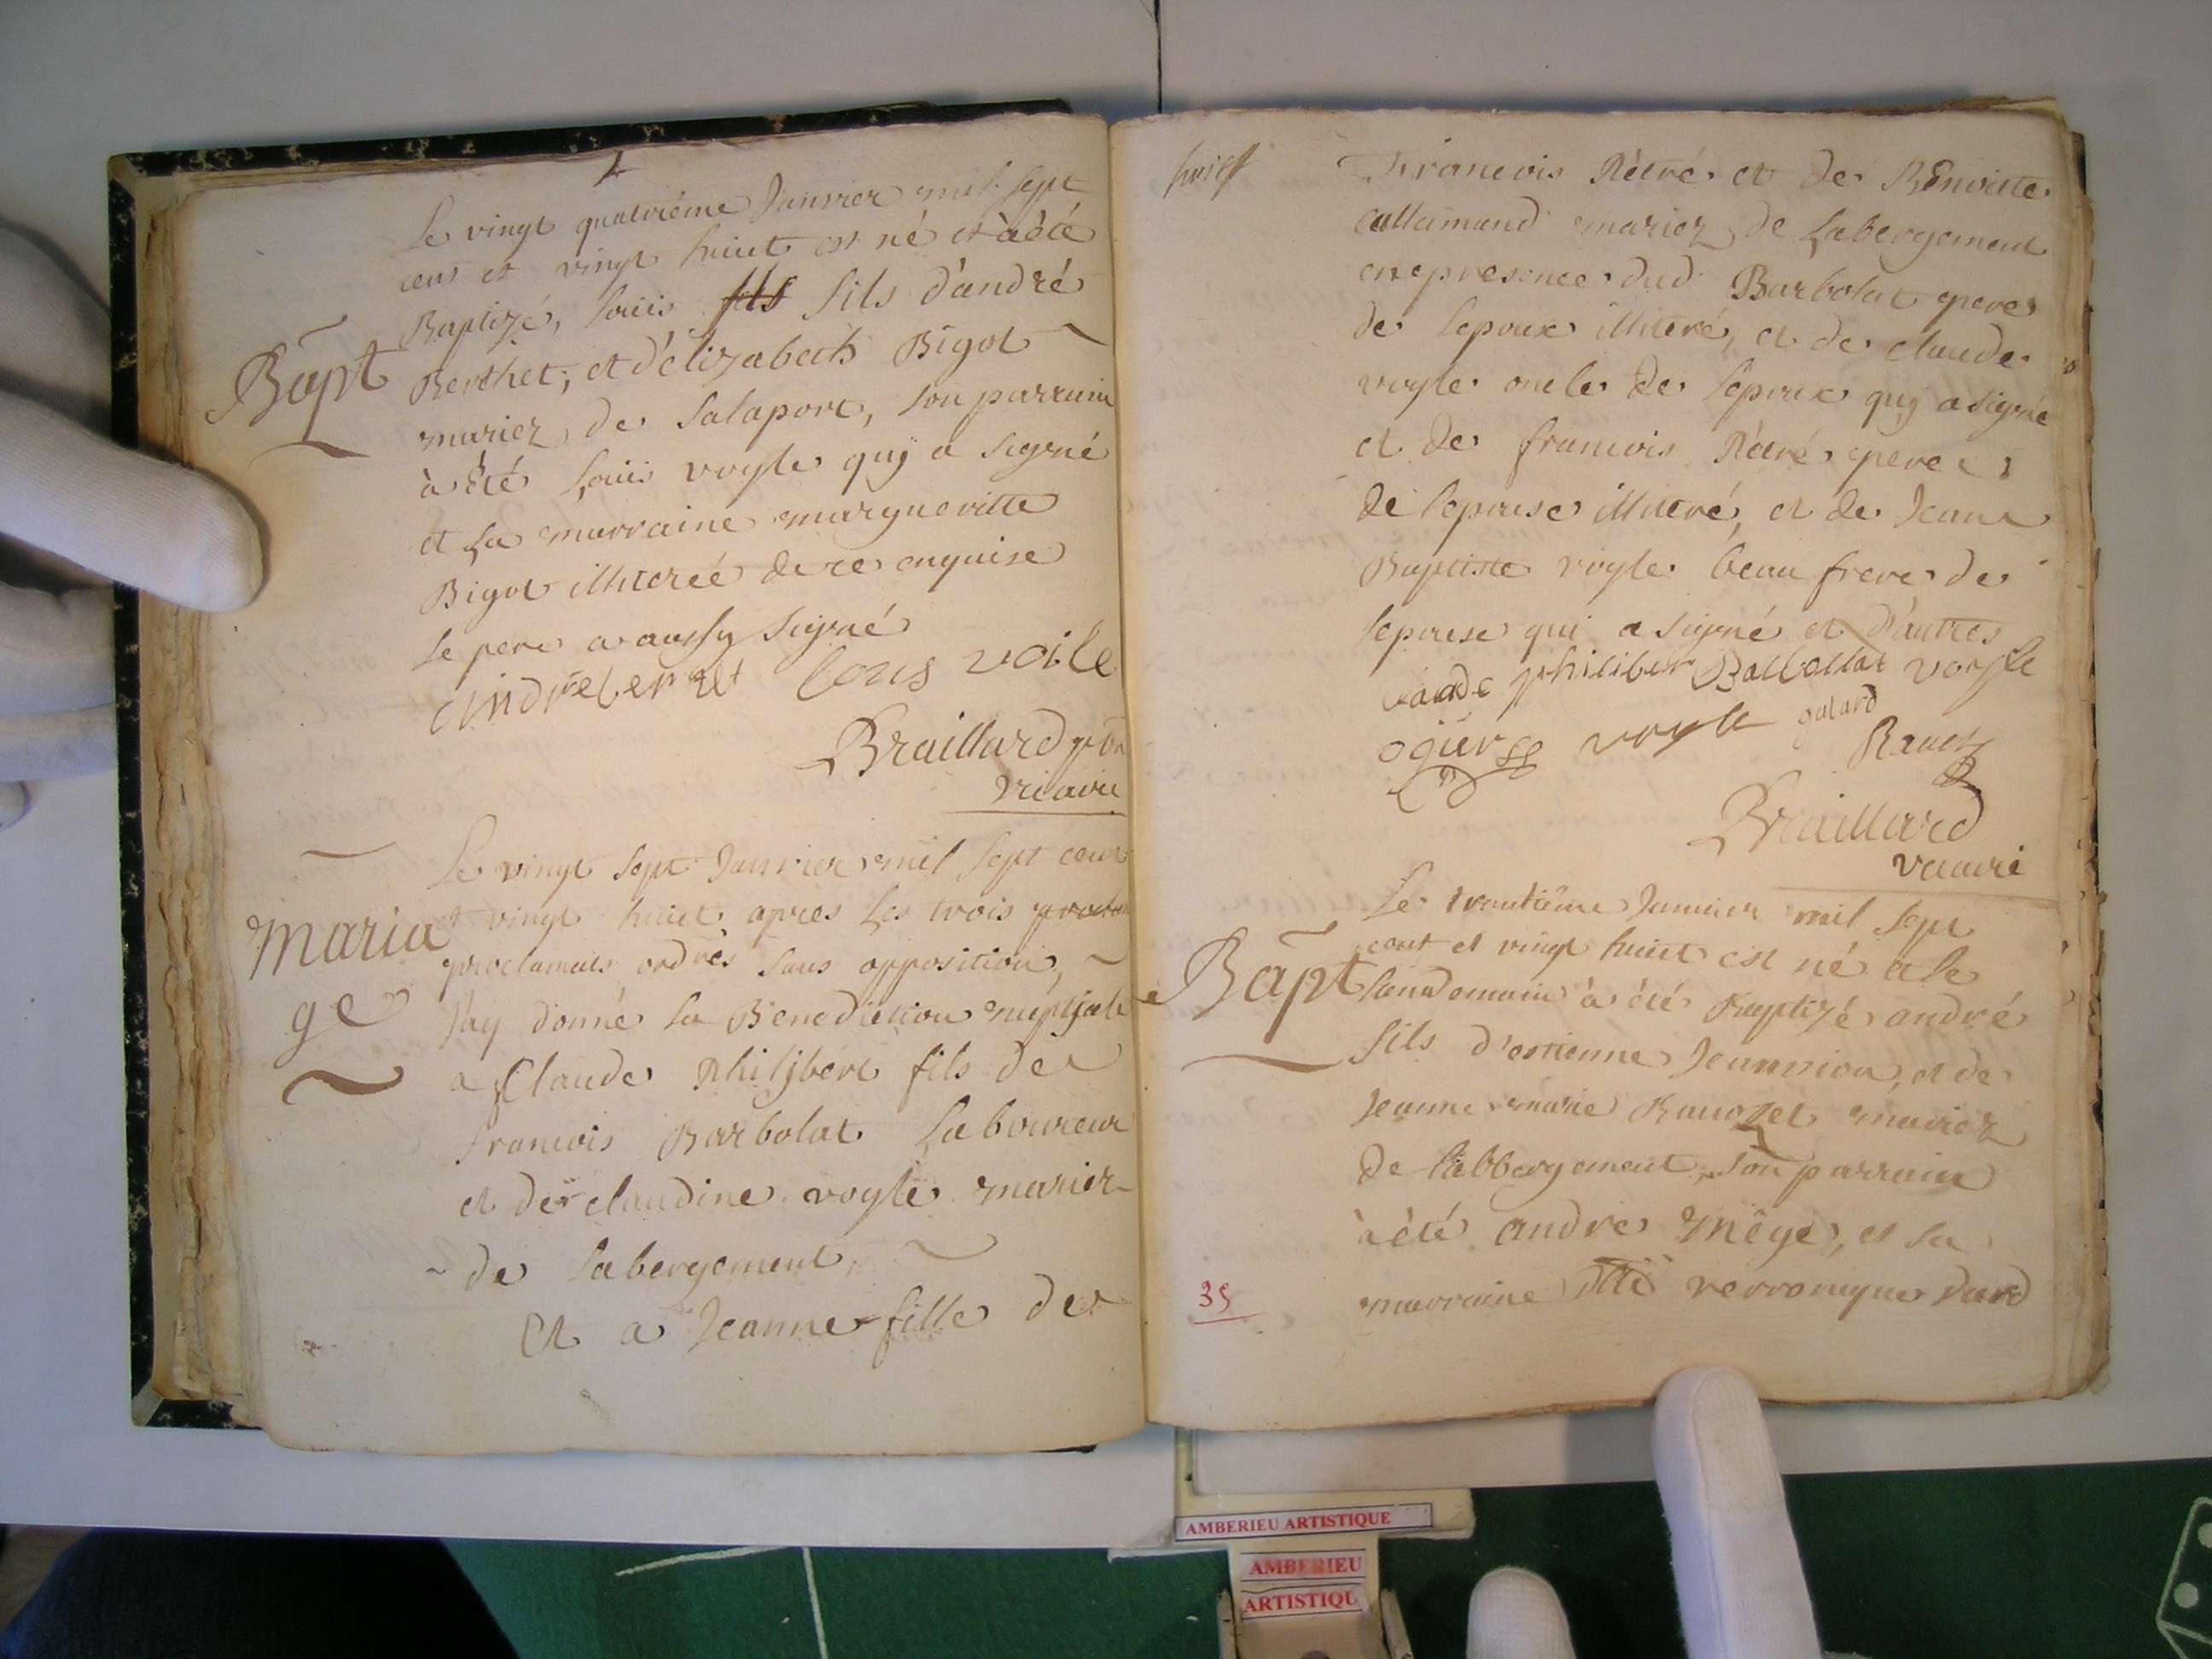 Le vingt quatriéme Janvier mil sept
cent et vingt huict est né et à été
Baptizé, louis fils d'andré
Bapt
Berthet, et d'élizabeth Bigot
mariez de Salaport, son parrain
à été Louis voyle quÿ a signé
et La marraine margueritte
Bigot illiterée de ce enquise
Le pere a aussy signé
andrébertet lous voile
Braillard pbr
vicaire
Le vingt sept Janvier mil sept cent
et vingt huict apres Les trois
Maria
proclamats ordres sans opposition,
ge
J'ay donné La Benediction nuptjale
a Claude Philjbert fils de
francois Barbolat Laboureur
et de claudine voyle mariez
de Labergement,
Et a Jeanne fille de
Francois Rètré et de Benoitte
callamand mariez de Labergement
en presence dud Barbolat pere
de l'epoux illiteré, et de claude
voyle oncle de l'epoux quÿ a signé
et de francois Rètré pere
de l'epouse illiteré, et de Jean
Baptiste voyle beau frere de
l'epouse qui a signé et d'autres
claude philibert Balbollat voyle
ogier voyle galard
Braillard
vicaire
Le trentiême Janvier mil sept
cent et vingt huict est né et le
Bapt
landemain à été Baptizé andré
fils d'estienne Jeannion, et de
Jeanne marie Ravozet mariez
de l'abbergement, son parrain
à été andre Mége, et sa
marraine dlle verronique Dard
35
AMBERIEU ARTISTIQUE
AMBERIEU
ARTISTIQU